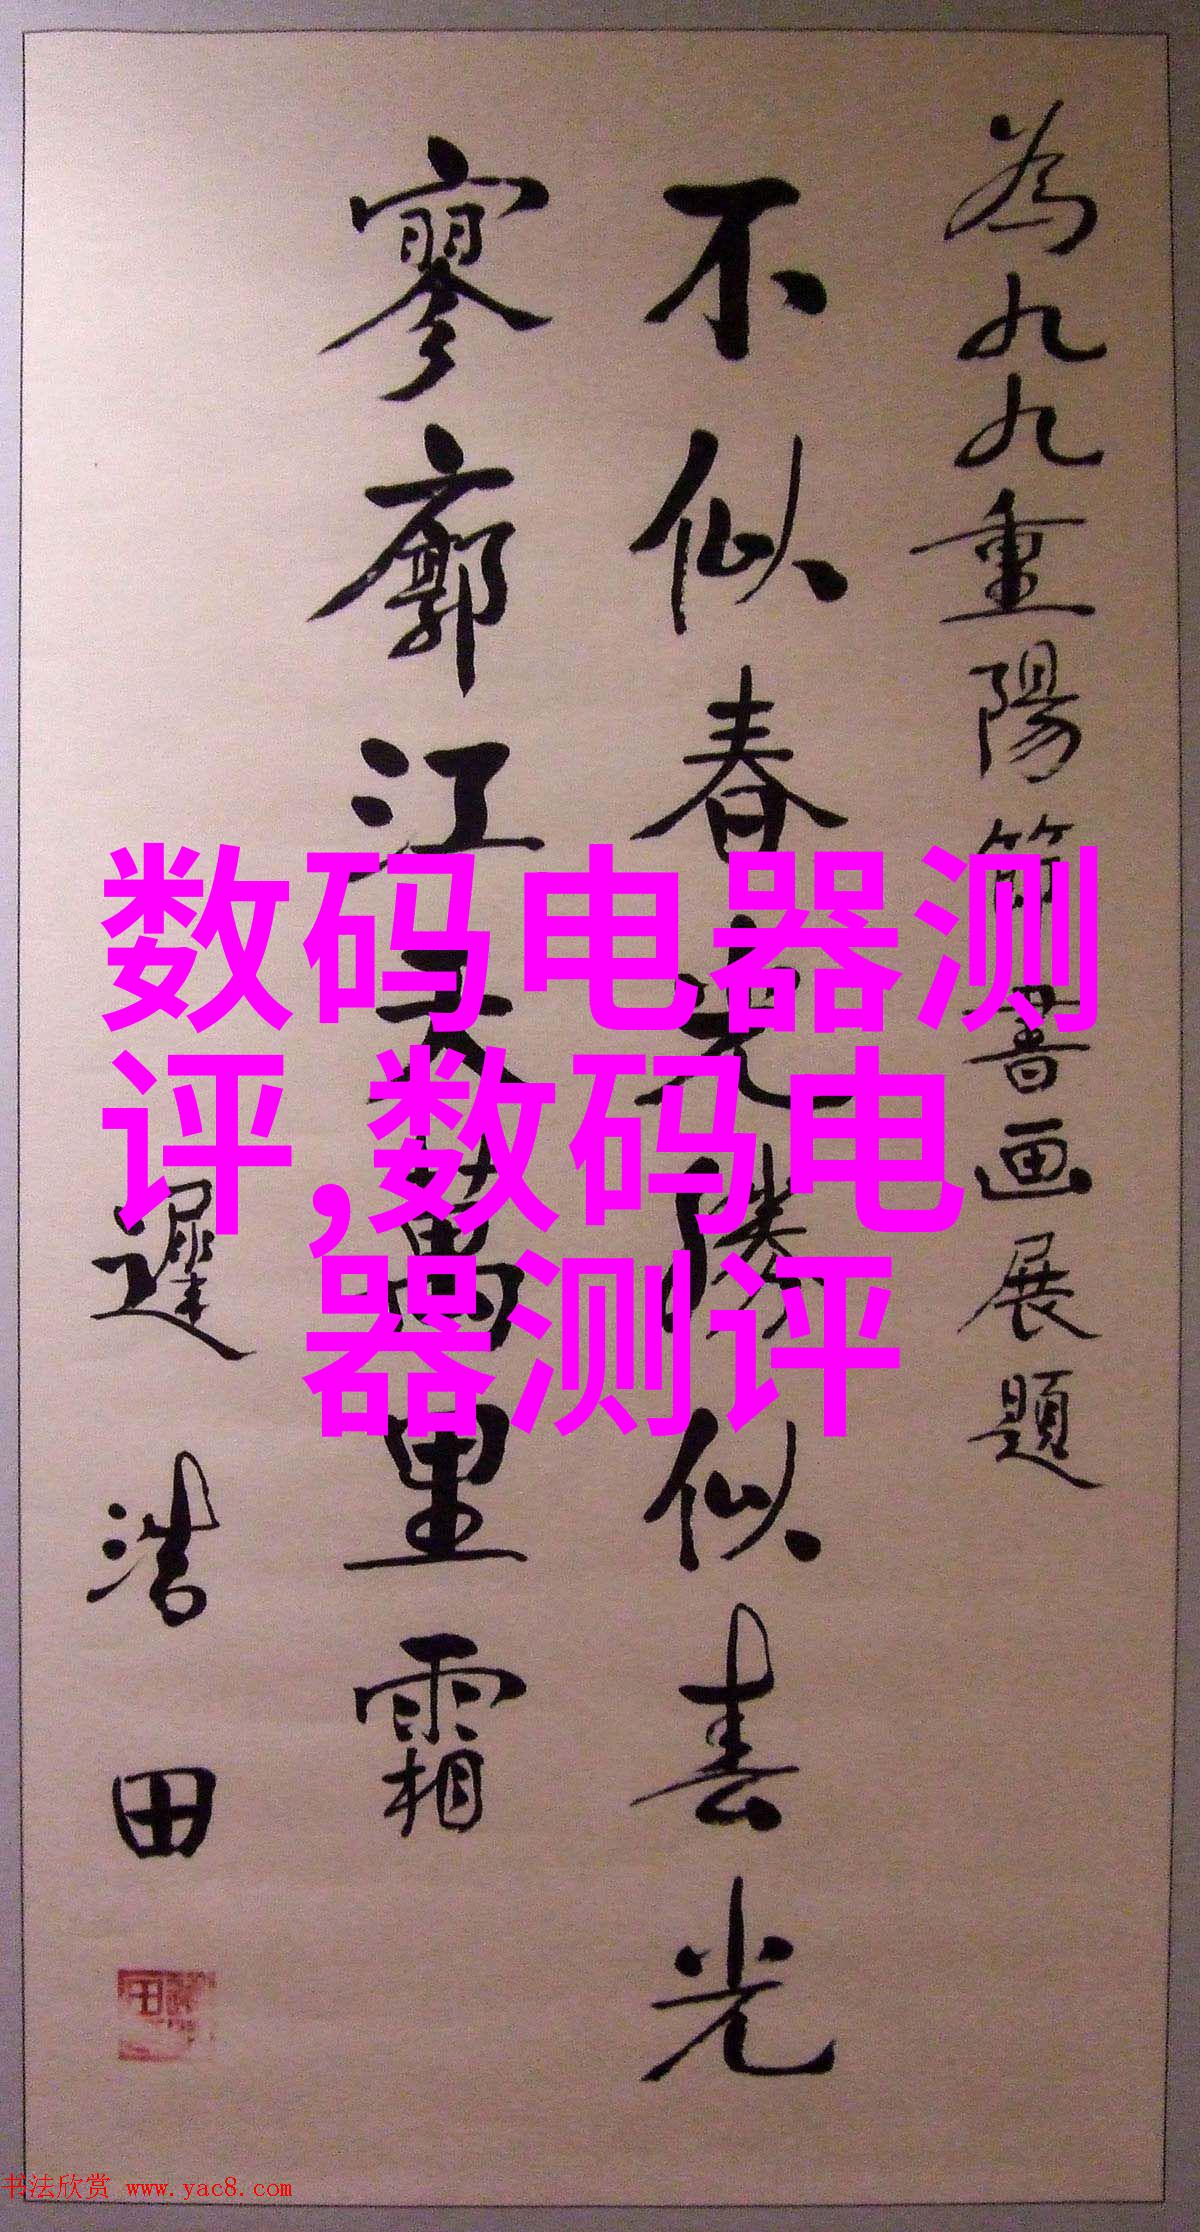 為九九重陽節書画展題
不似春光勝似春光
寥廓江天萬里霜
遲浩田
数码电器测
评,数码电
器测评
书法欣赏 www.yac8.com